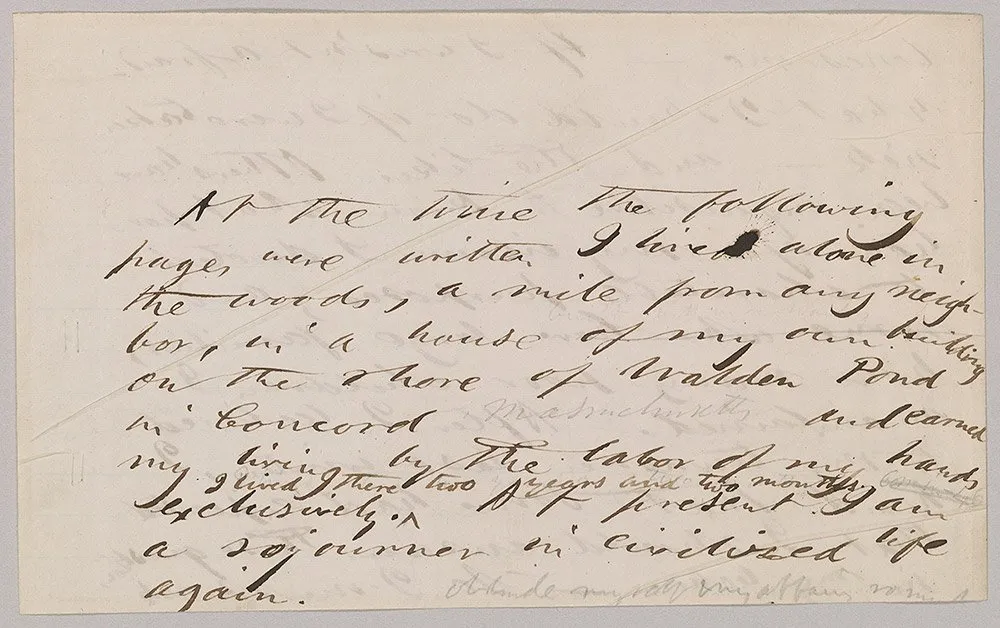 At the time the following
pages were written I lived alone in
the woods, a mile from any neigh-
bor, in a house of my own building
on the shore of Walden Pond
in Concord Massachusetts and earned
my living by the labor of my hands
I lived there two years and two months
exclusively. ^ At present I am
a sojourner in civilized life
again.
obtrude my affairs